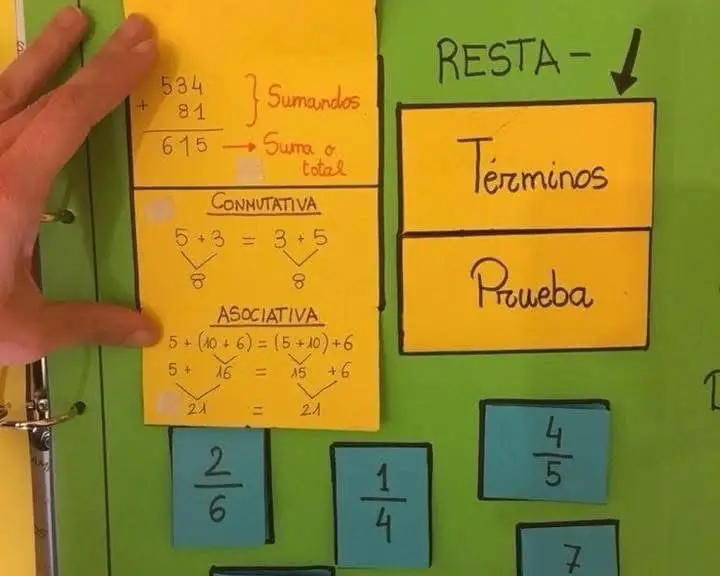 534
+ 81
615
Sumandos
→ Suma o
total
CONMUTATIVA
5 + 3 = 3 + 5
8 8
ASOCIATIVA
5 + (10 + 6) = (5 + 10) + 6
5 + 16 = 15 + 6
21 = 21
RESTA -
Términos
Prueba
2
6
1
4
4
5
7